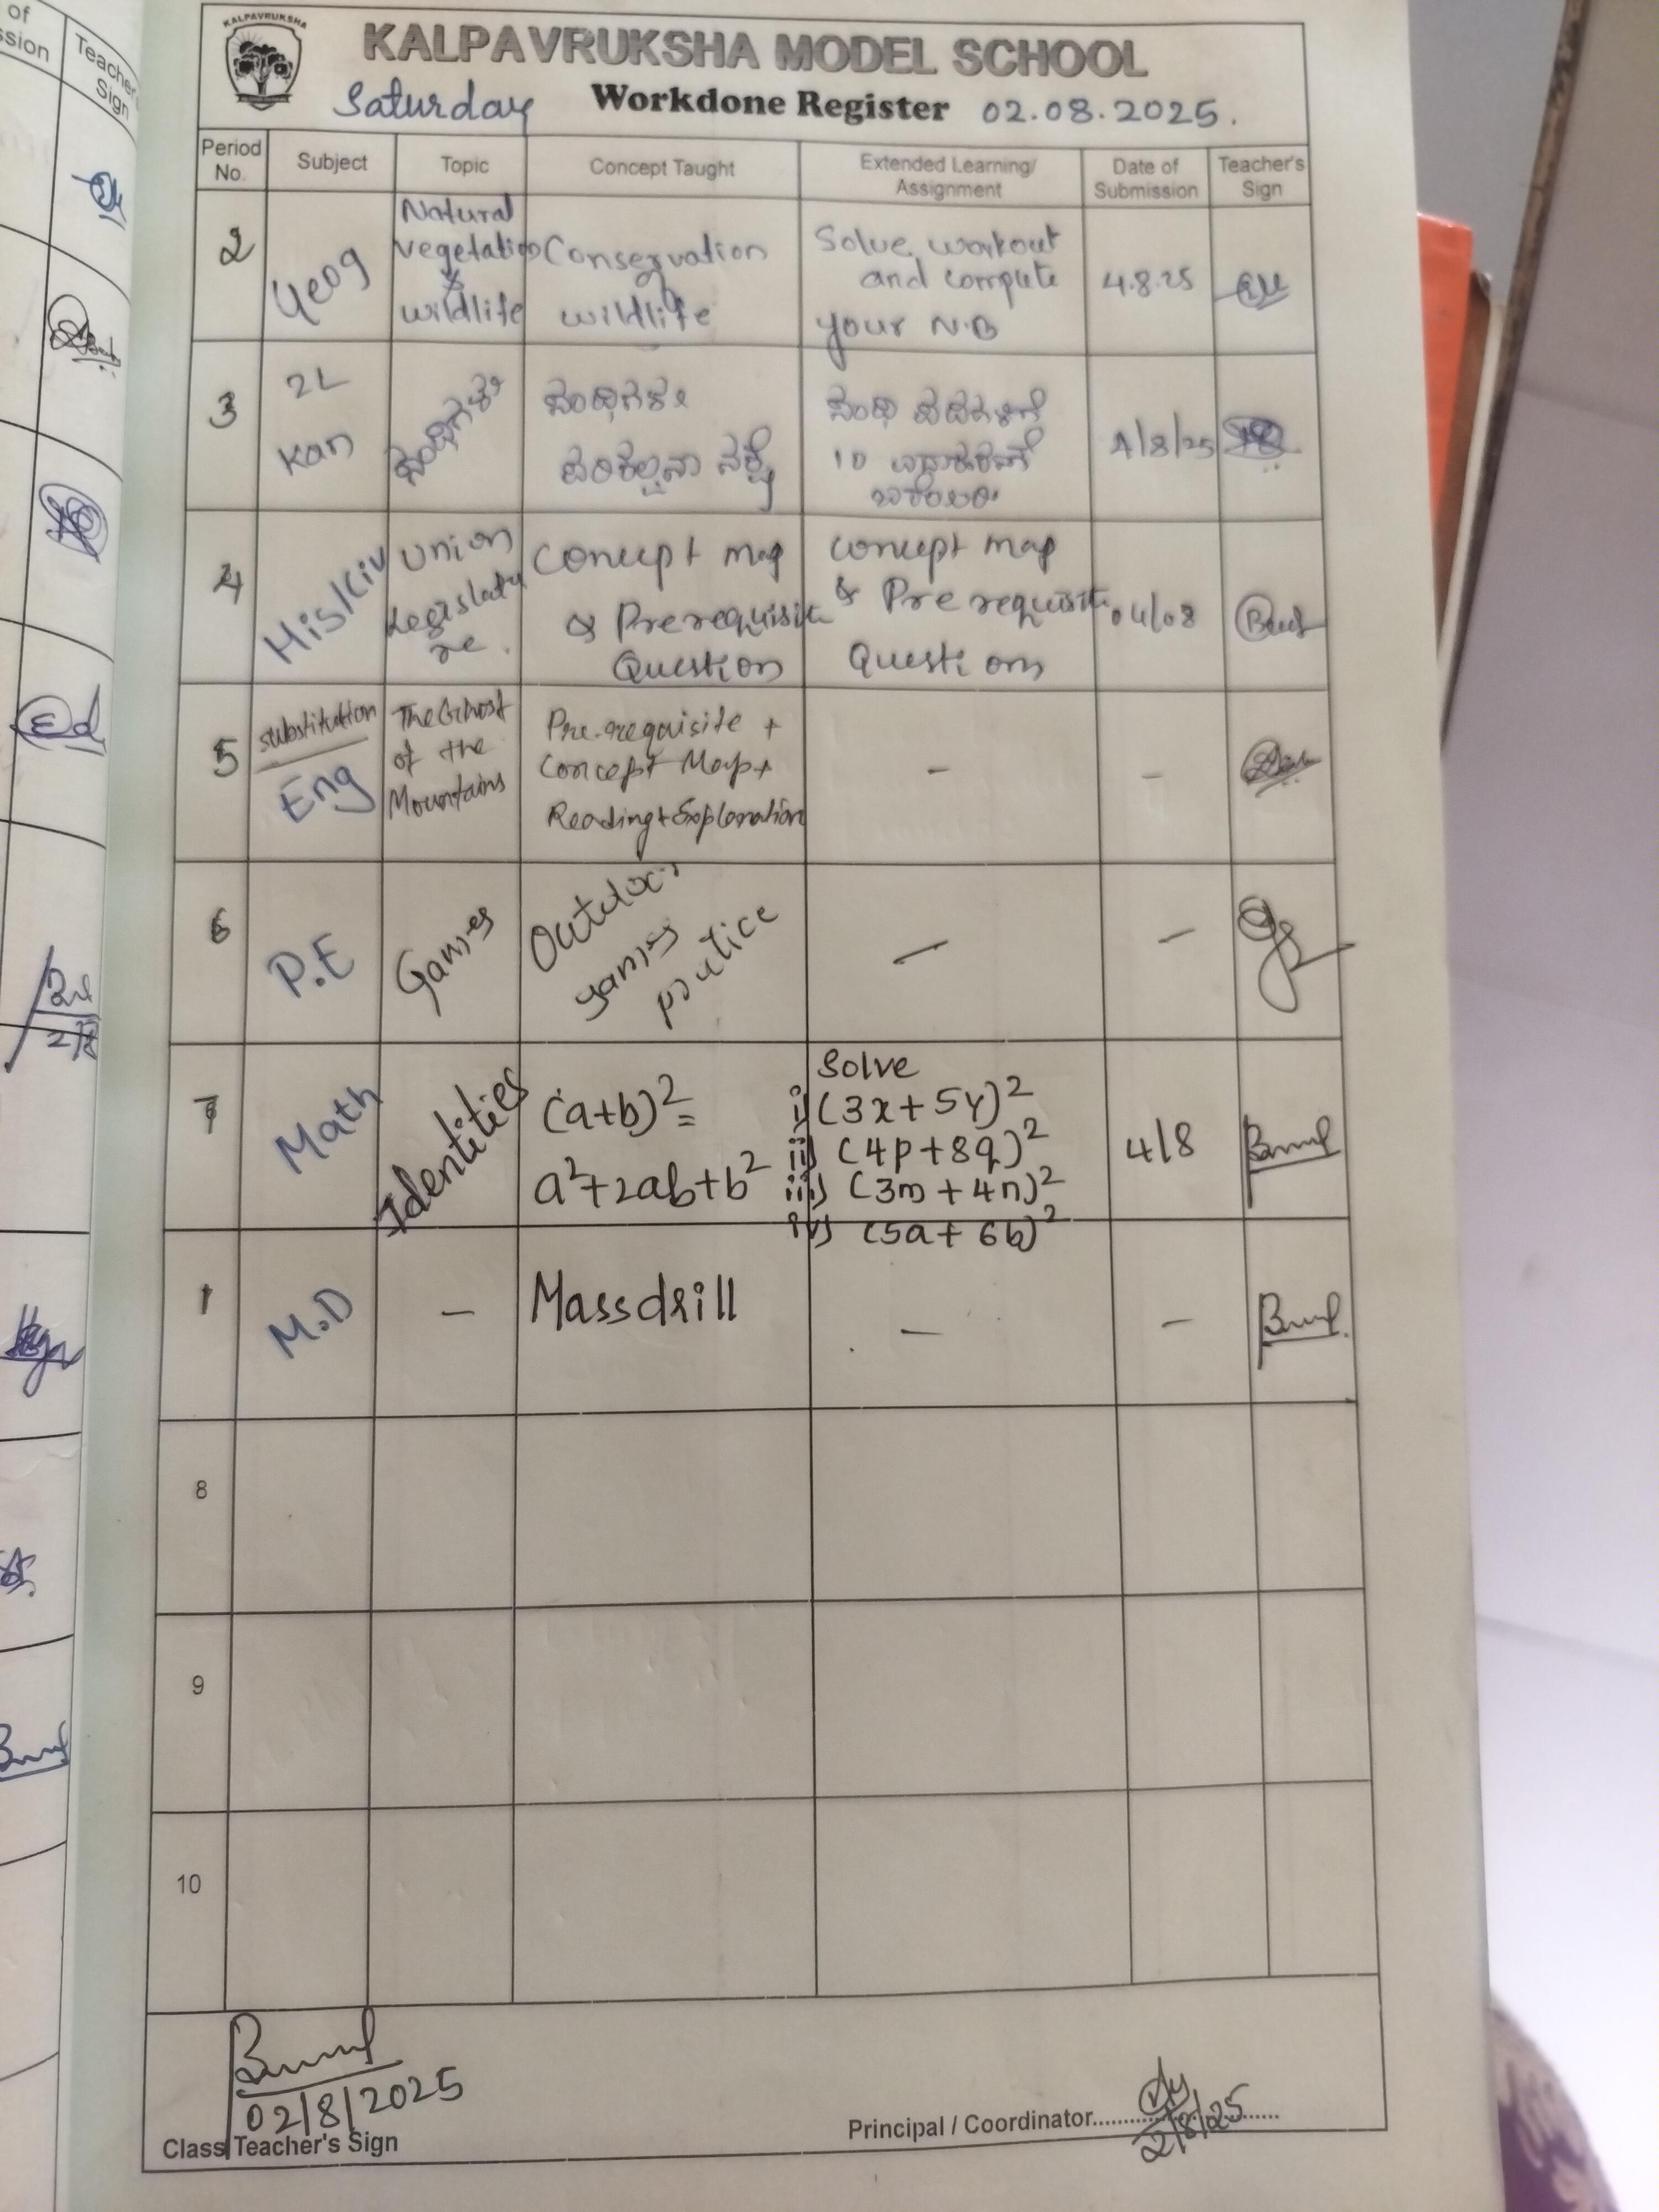 of
ssion
Teacher
Sign
KALPAVRUKSHA
KALPAVRUKSHA MODEL SCHOOL
Saturday Workdone Register 02.08.2025.
Period No. Subject Topic Concept Taught Extended Learning/ Assignment Date of Submission Teacher's Sign
2 Geog Natural vegetation & wildlife Conservation of wildlife Solve, workout and complete your N.B 4.8.25
3 2L Kan ಸಂಧಿಗಳು ಸಂಧಿಗಳು ಪರಿಕಲ್ಪನಾ ನಕ್ಷೆ ಸಂಧಿ 10 4/8/25
4 His/Civ Union Legislatu re. Concept map & Prerequisite Question Concept map & Prerequisite Questions 04/08
5 substitution Eng The Ghost of the Mountains Pre-requisite + Concept Map + Reading + Explanation - -
6 P.E Games Outdoor games practice - -
7 Math Identities (a+b)²= a²+2ab+b² Solve i) (3x+5y)² ii) (4p+8q)² iii) (3m+4n)² iv) (5a+6b)² 4/8
1 M.D - Massdrill - -
8
9
10
02/8/2025
Class Teacher's Sign
Principal / Coordinator
2/8/25